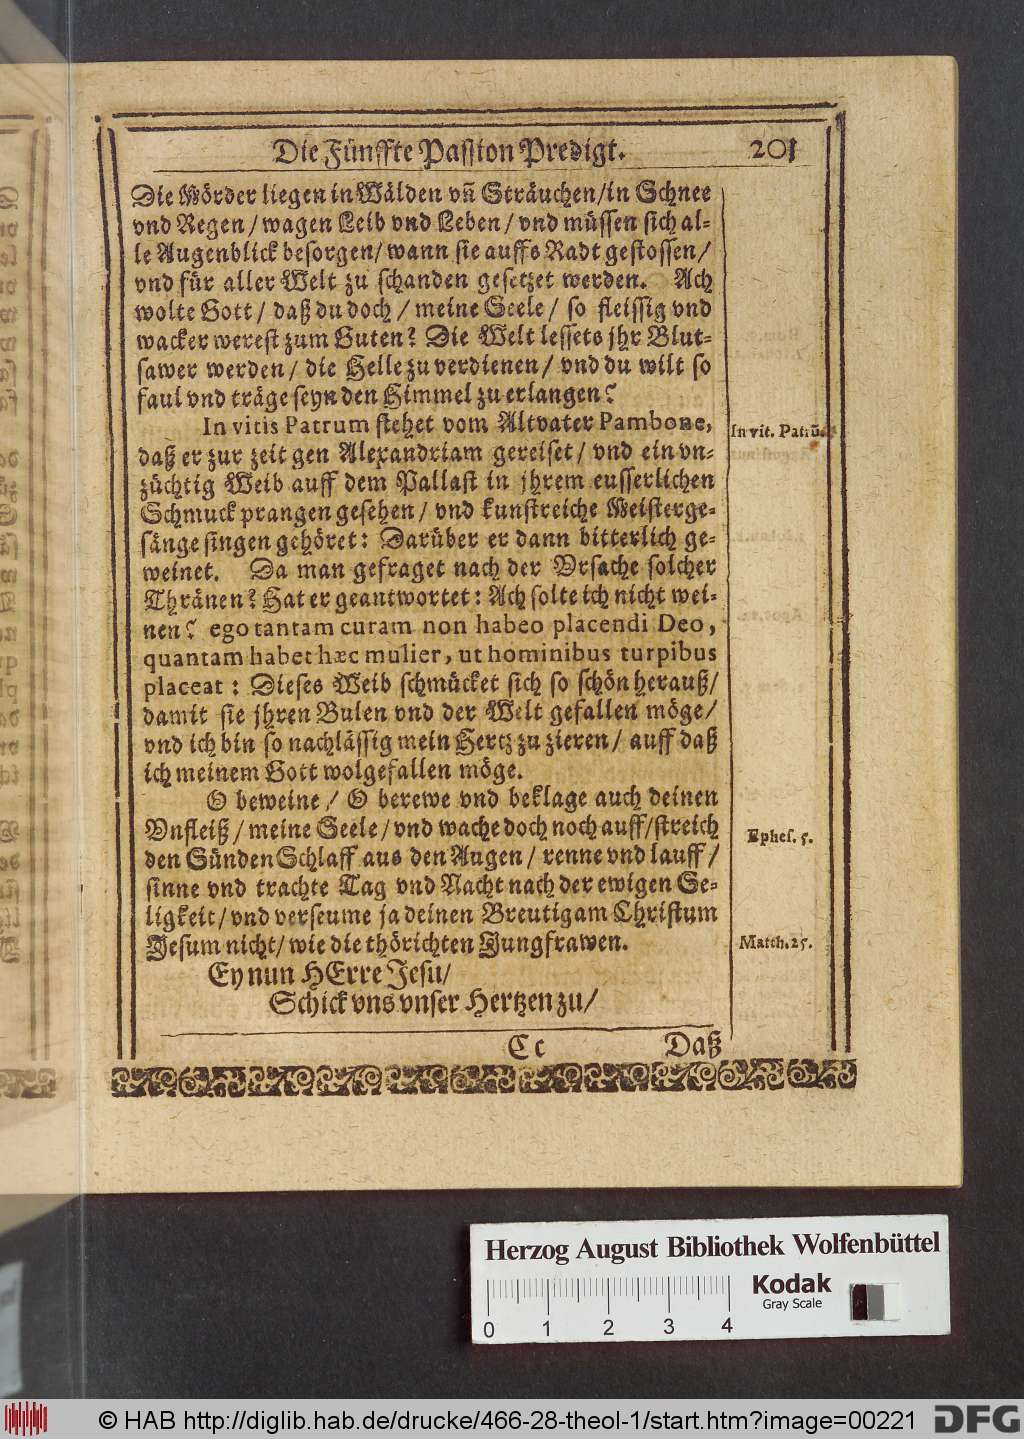 Die Fünffte Passion Predigt. 201
Die Mörder liegen in Wälden vn̄ Sträuchen/in Schnee
vnd Regen/ wagen Leib vnd Leben/ vnd müssen sich al-
le Augenblick besorgen/ wann sie auffs Radt gestossen/
vnd für aller Welt zu schanden gesetzet werden. Ach
wolte Gott/ daß du doch/ meine Seele/ so fleissig vnd
wacker werest zum Guten? Die Welt lessets jhr Blut-
sawer werden/ die Helle zu verdienen/ vnd du wilt so
faul vnd träge seyn den Himmel zu erlangen?
In vitis Patrum stehet vom Altvater Pambone,
In vit. Patrū.
daß er zur zeit gen Alexandriam gereiset/ vnd ein vn-
züchtig Weib auff dem Pallast in jhrem eusserlichen
Schmuck prangen gesehen/ vnd kunstreiche Meisterge-
sänge singen gehöret: Darüber er dann bitterlich ge-
weinet. Da man gefraget nach der Vrsache solcher
Thränen? Hat er geantwortet: Ach solte ich nicht wei-
nen? ego tantam curam non habeo placendi Deo,
quantam habet hæc mulier, ut hominibus turpibus
placeat: Dieses Weib schmücket sich so schön herauß/
damit sie jhren Bulen vnd der Welt gefallen möge/
vnd ich bin so nachlässig mein Hertz zu zieren/ auff daß
ich meinem Gott wolgefallen möge.
O beweine/ O berewe vnd beklage auch deinen
Vnfleiß/ meine Seele/ vnd wache doch noch auff/streich
Ephes. 5.
den Sünden Schlaff aus den Augen/ renne vnd lauff/
sinne vnd trachte Tag vnd Nacht nach der ewigen Se-
ligkeit/ vnd verseume ja deinen Breutigam Christum
Jesum nicht/ wie die thörichten Jungfrawen.
Matth. 25.
Ey nun HErre Jesu/
Schick vns vnser Hertzen zu/
Cc Daß
Herzog August Bibliothek Wolfenbüttel
Kodak
Gray Scale
0 1 2 3 4
© HAB http://diglib.hab.de/drucke/466-28-theol-1/start.htm?image=00221
DFG